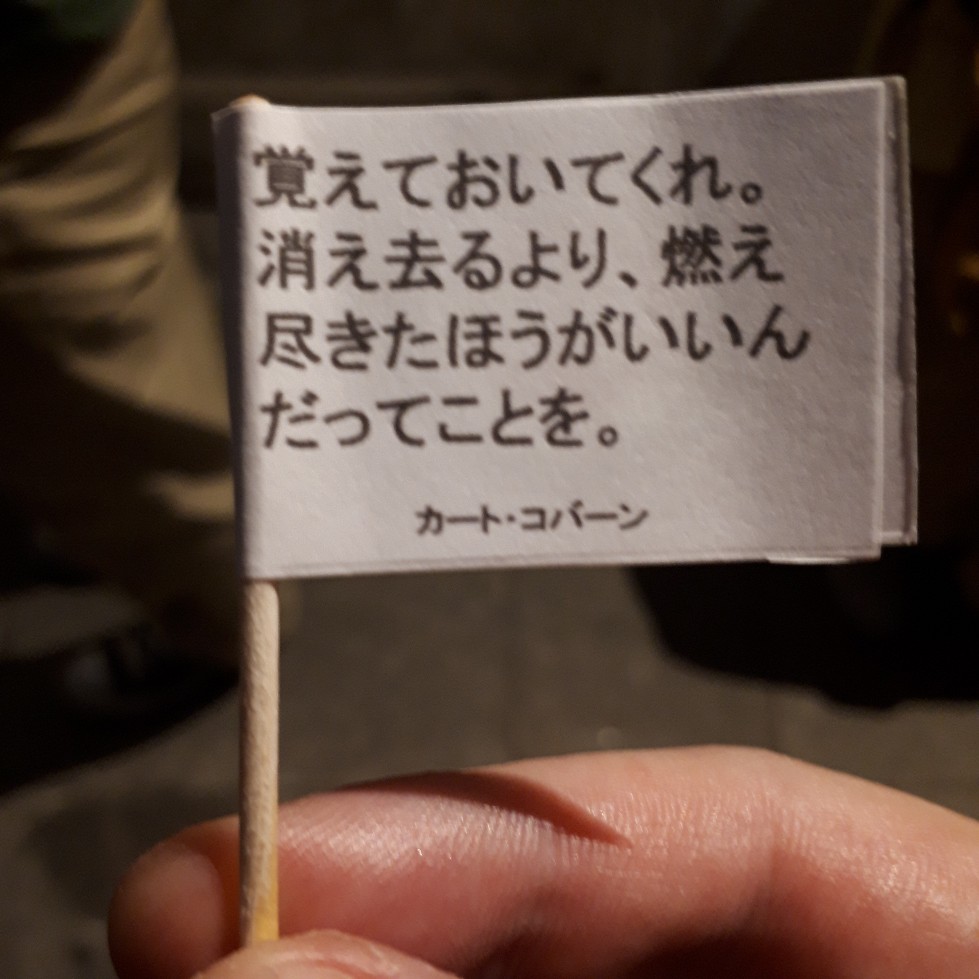 覚えておいてくれ。
消え去るより、燃え
尽きたほうがいいん
だってことを。
カート・コバーン